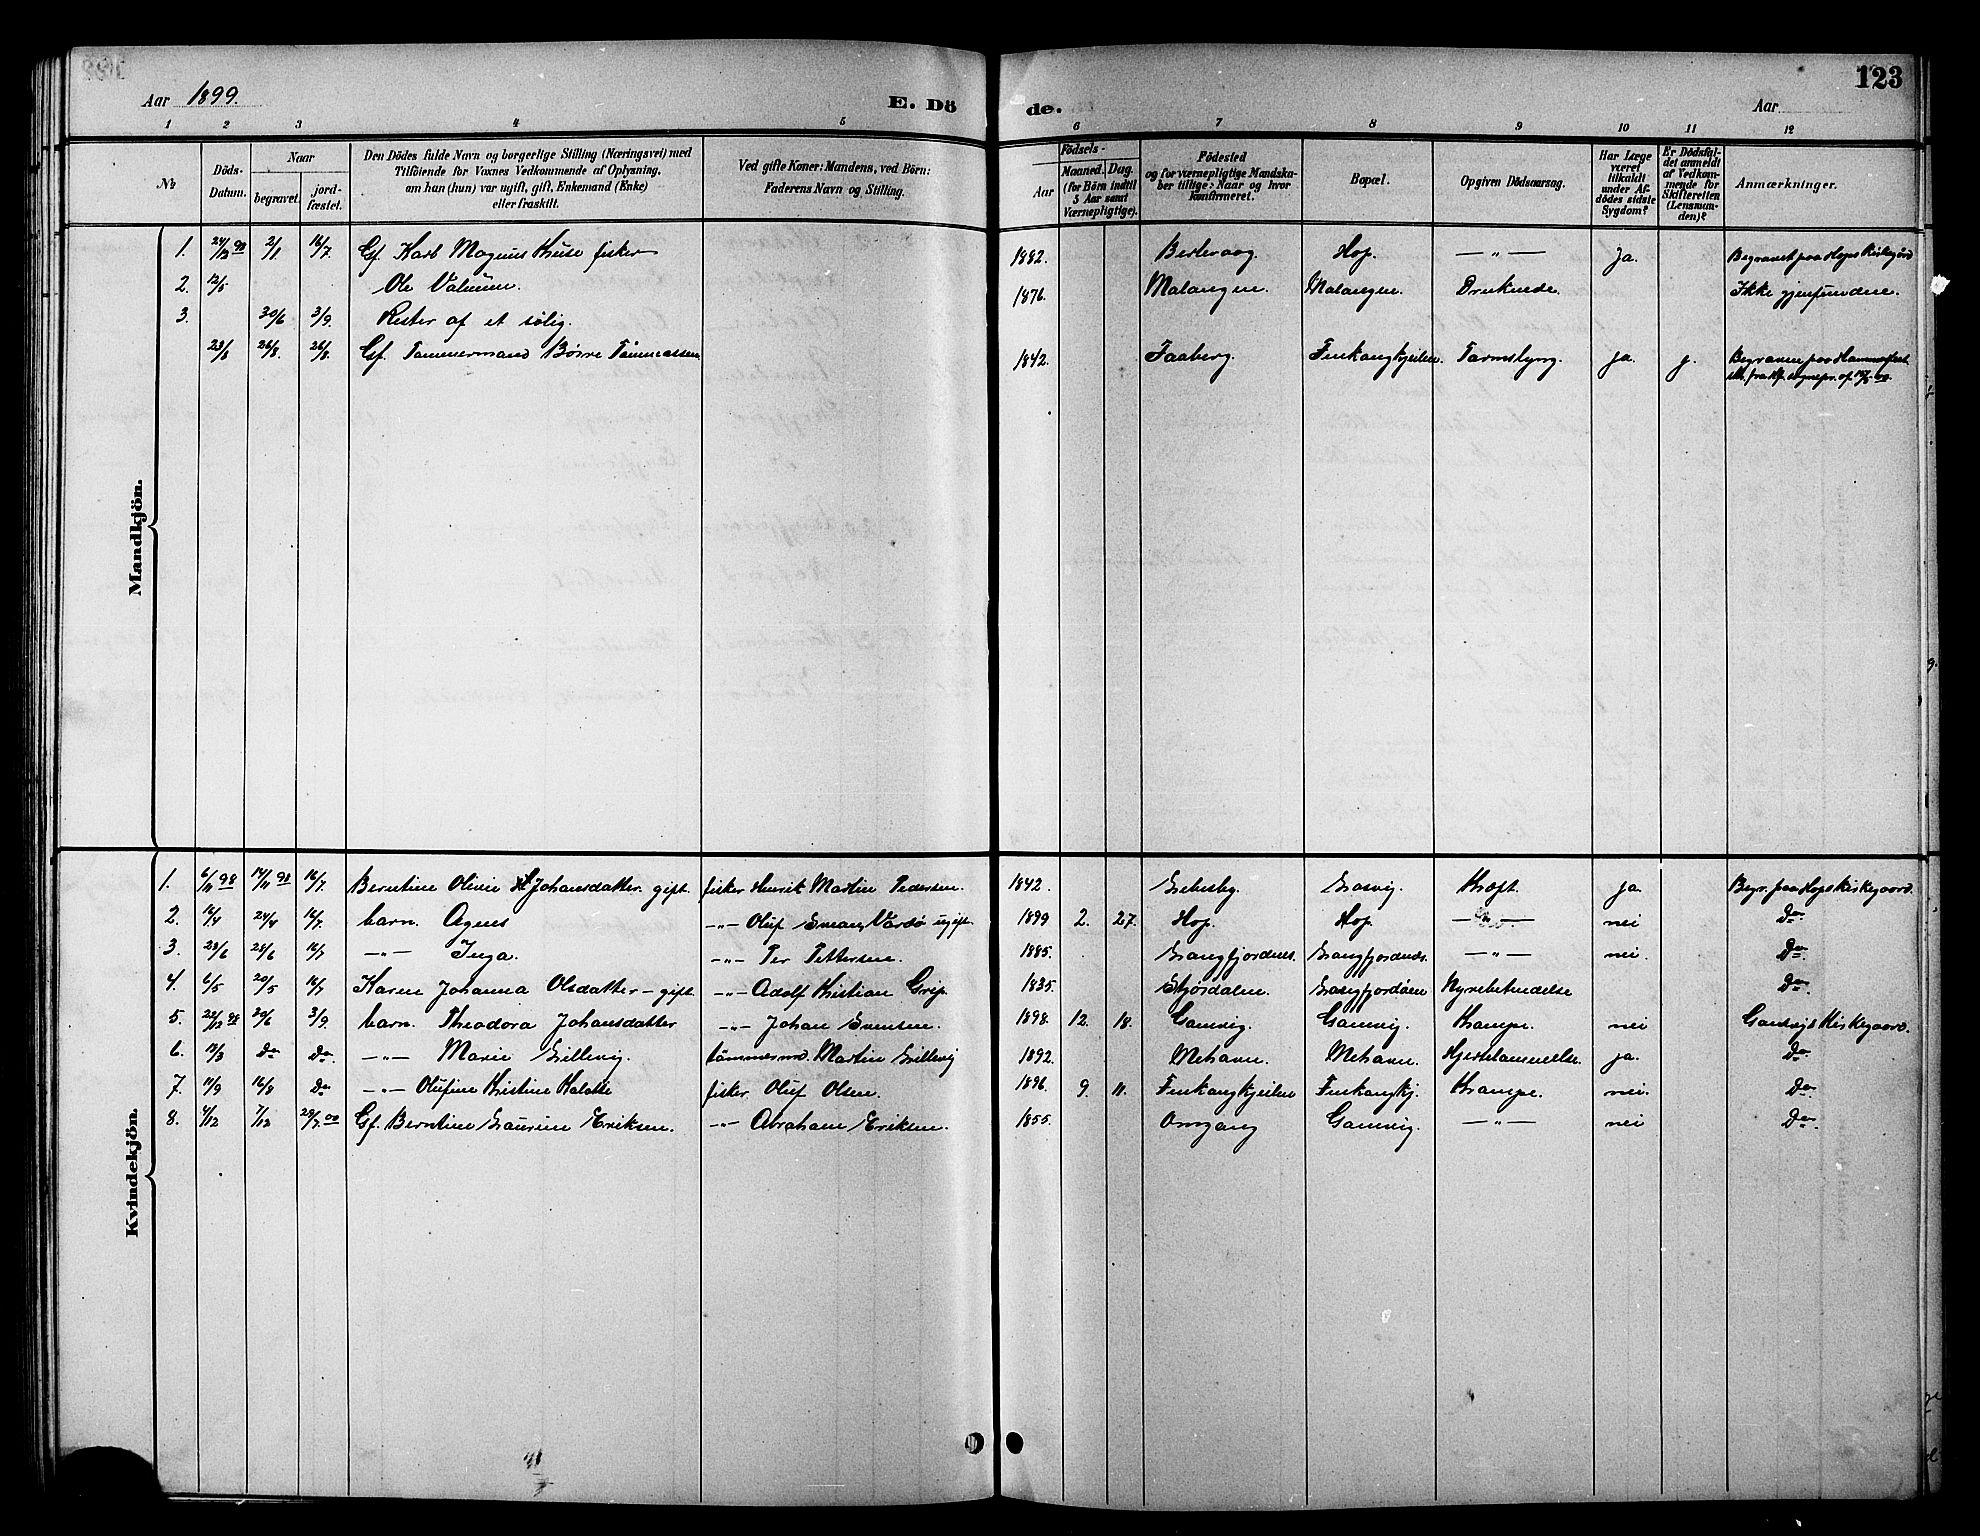 Aar 1899. E. Dö de. Aar 123
1 2 3 4 5 6 7 8 9 10 11 12
No
Döds-Datum.
Naar
begravet.
jord-fæstet.
Den Dödes fulde Navn og borgerlige Stilling (Næringsvei) med
Tilföiende for Voxnes Vedkommende af Oplysning,
om han (hun) var ugift, gift, Enkemand (Enke)
eller fraskilt.
Ved gifte Koner: Mandens, ved Börn:
Faderens Navn og Stilling.
Födsels-
Aar
Maaned. Dag.
(for Börn indtil
5 Aar samt
Værnepligtige).
Födested
og for værnepligtige Mandska-
ber tillige: Naar og hvor
konfirmeret.
Bopæl.
Opgiven Dödsaarsag.
Har Læge
været
tilkaldt
under Af-
dödes sidste
Sygdom?
Er Dödsfal-
det anmeldt
af Vedkom-
mende for
Skifteretten
(Lensman-
den)?
Anmærkninger.
Mandkjön.
1. 24/12 98 2/1 16/7 Gf. Karl Magnus Kruse fisker 1882. Berlevaag. Hop. —"— Ja. Begravet paa Hops Kirkegård
2. 12/5 Ole 1876. Malangen. Malangen. Druknede. Ikke gjenfundne.
3. 30/6 3/9. Rester af et sølig.
23/8 26/8. 26/8. Gf. Tømmermand Børre 1842. Faaberg. Finkongkjeilen. Tarmslyng. ja. j. Begraven paa Hammerfest
Kvindekjön.
1. 6/11 98 14/11 98 16/7 Berntine Olivie Johansdatter gift. fisker Henrik Martin Pedersen. 1842. Lebesby. Laxvig. Kræft. ja. Begr. paa Hops Kirkegaard.
2. 16/4 24/4 16/7. barn. Agnes —"— Oluf Vardø ugift. 1899 2. 27. Hop. Hop. nei Do.
3. 23/6 28/6 16/7 —"— Inga. —"— Per Pettersen. 1885. Langfjordnes. Langfjordnæs. —"— nei. Do.
4. 6/5 20/5 16/7 Karen Johanna Olsdatter – gift. —"— Adolf Kristian Grip. 1835. Stjørdalen. Langfjordnæs Nyrebetændelse Do.
5. 22/12 98 30/6 3/9. barn. Theodora Johansdatter —"— Johan Svensen. 1898. 12. 18. Gamvig. Gamvig. Krampe. nei Gamvigs Kirkegaard.
6. 13/3 Do Do —"— Marie Lillevig. tømmermd. Martin Lillevig 1892. Mehavn. Mehavn. ja. Do.
7. 11/9 16/8 Do —"— Olufine Kristine fisker Oluf Olsen. 1896. 9. 11. Finkongkjeilen Finkongkj. Krampe. nei. Do.
8. 4/12 7/12 29/7.00 Gf. Berntine Laurine Eriksen. —"— Abraham Eriksen. 1855. Omgang Gamvig. —"— nei Do.